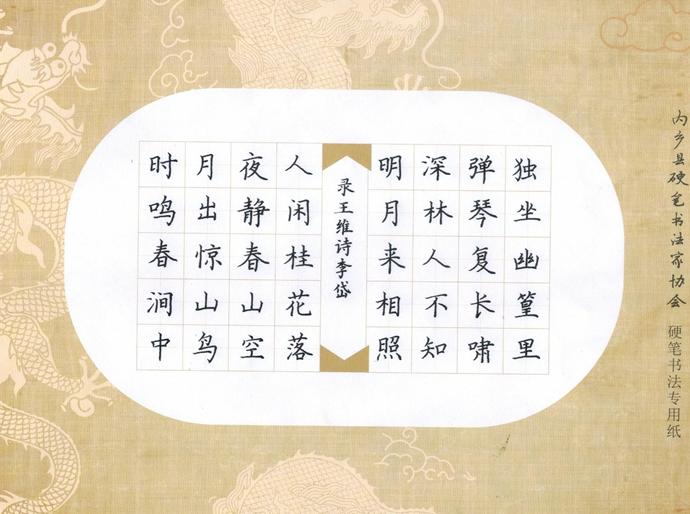 内乡县硬笔书法家协会 硬笔书法专用纸
独坐幽篁里
弹琴复长啸
深林人不知
明月来相照
录王维诗李岱
人闲桂花落
夜静春山空
月出惊山鸟
时鸣春涧中